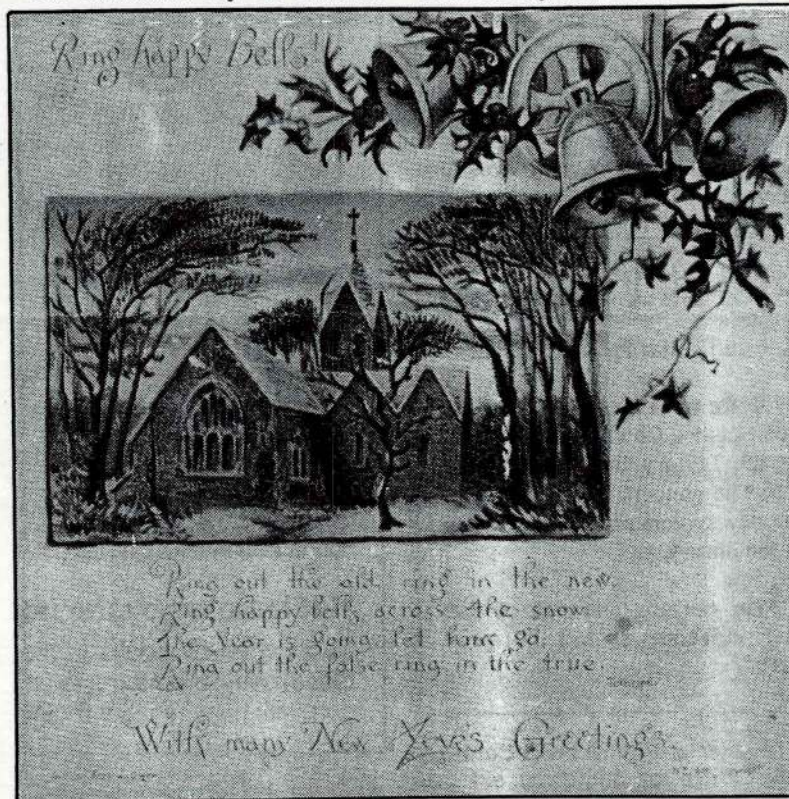 Ring happy Bells!
Ring out the old, ring in the new.
Ring happy bells across the snow.
The Year is going, let him go.
Ring out the false, ring in the true.
Tennyson
With many New Year's Greetings.